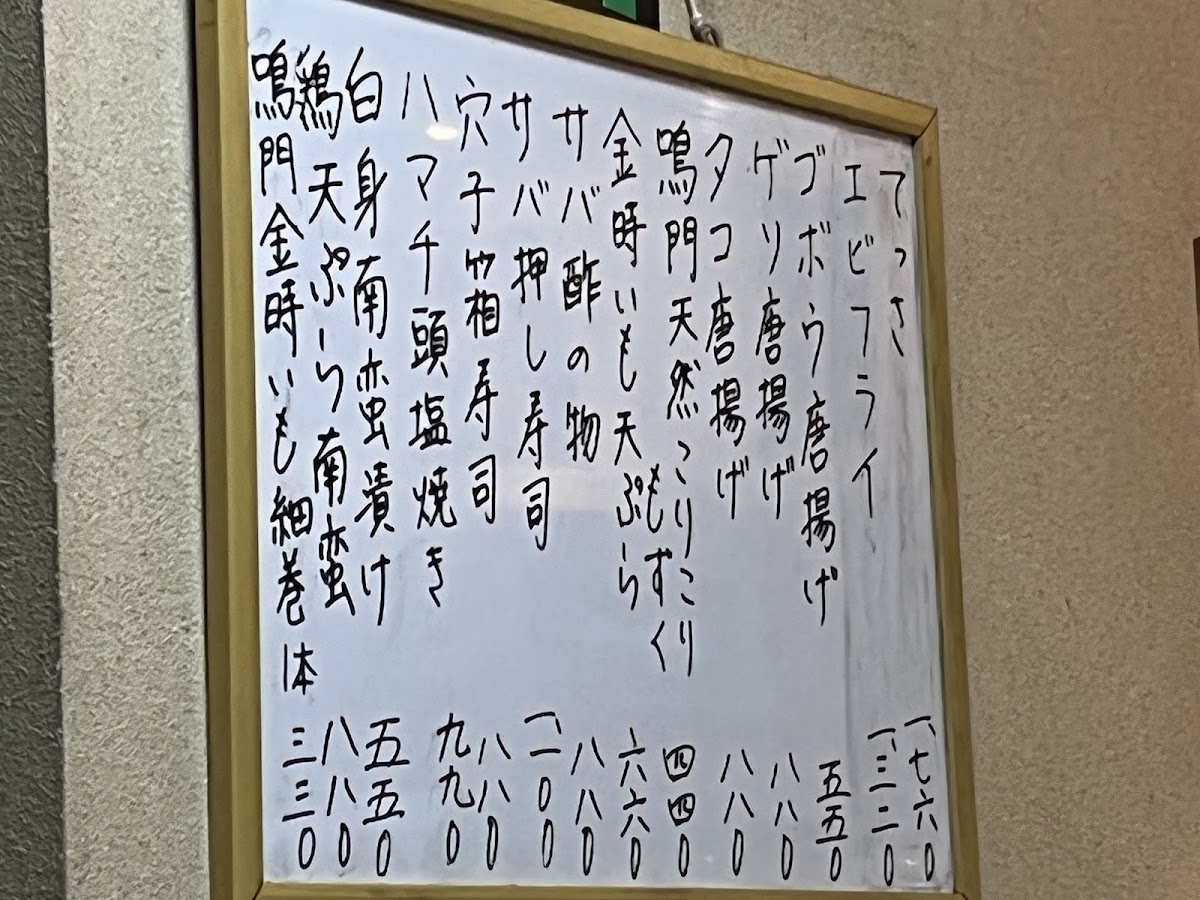 てっさ 一、七六〇
エビフライ 一、三二〇
ゴボウ唐揚げ 五五〇
ゲソ唐揚げ 八八〇
タコ唐揚げ 八八〇
鳴門天然こりこり
もずく 四四〇
金時いも天ぷら 六六〇
サバ酢の物 八八〇
サバ押し寿司 一、一〇〇
穴子箱寿司 八八〇
ハマチ頭塩焼き 九九〇
白身南蛮漬け 五五〇
鶏天ぷら南蛮 八八〇
鳴門金時いも細巻1本 三三〇